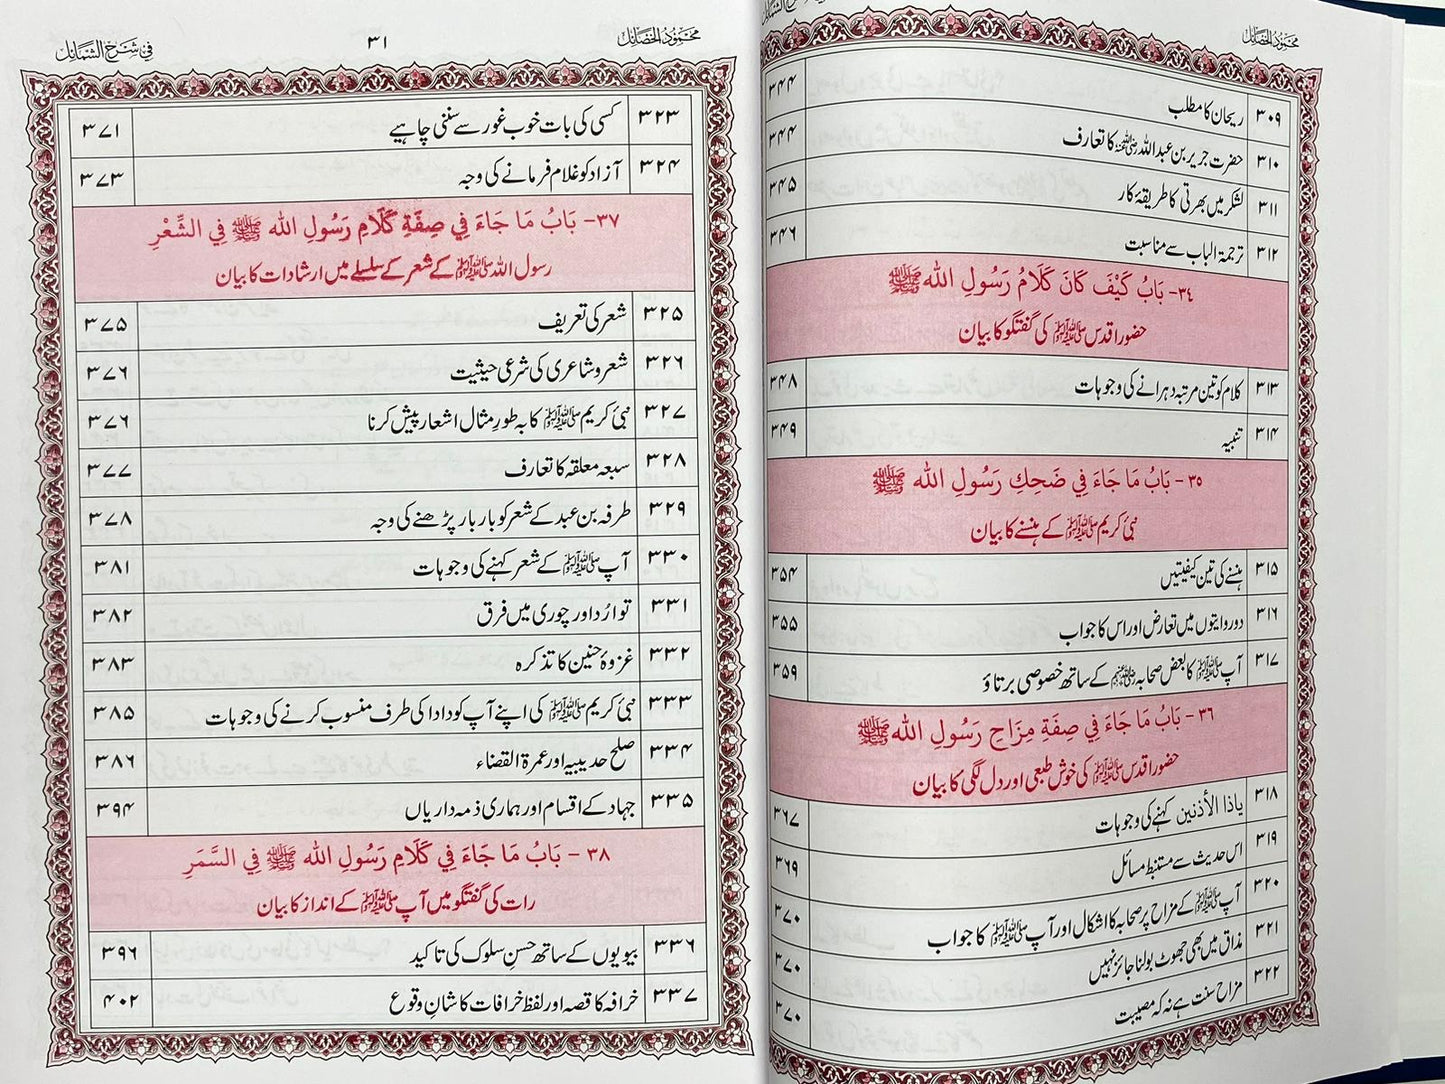 محمود الخصائل
۳۰۹ ریحان کا مطلب ۳۴۴
۳۱۰ حضرت جریر بن عبداللہ رضی اللہ عنہ کا تعارف ۳۴۴
۳۱۱ لشکر میں بھرتی کا طریقۂ کار ۳۴۵
۳۱۲ ترجمۃ الباب سے مناسبت ۳۴۶
۳٤- بَابُ كَيْفَ كَانَ كَلَامُ رَسُولِ اللہ ﷺ
حضور اقدس ﷺ کی گفتگو کا بیان
۳۱۳ کلام کو تین مرتبہ دہرانے کی وجوہات ۳۴۸
۳۱۴ تنبیہ ۳۴۹
۳۵- بَابُ مَا جَاءَ فِي ضَحِكِ رَسُولِ اللہ ﷺ
نبی کریم ﷺ کے ہنسنے کا بیان
۳۱۵ ہنسنے کی تین کیفیتیں ۳۵۴
۳۱۶ دو روایتوں میں تعارض اور اس کا جواب ۳۵۵
۳۱۷ آپ ﷺ کا بعض صحابہ رضی اللہ عنہم کے ساتھ خصوصی برتاؤ ۳۵۹
۳۶- بَابُ مَا جَاءَ فِي صِفَةِ مِزَاحِ رَسُولِ اللہ ﷺ
حضور اقدس ﷺ کی خوش طبعی اور دل لگی کا بیان
۳۱۸ یاذا الأذنین کہنے کی وجوہات ۳۶۷
۳۱۹ اس حدیث سے مستنبط مسائل ۳۶۹
۳۲۰ آپ ﷺ کے مزاح پر صحابہ کا اشکال اور آپ ﷺ کا جواب ۳۷۰
۳۲۱ مذاق میں بھی جھوٹ بولنا جائز نہیں ۳۷۰
۳۲۲ مزاح سنت ہے نہ کہ مصیبت ۳۷۰
محمود الخصائل ۳۱ في شرح الشمائل
۳۲۳ کسی کی بات خوب غور سے سننی چاہیے ۳۷۱
۳۲۴ آزاد کو غلام فرمانے کی وجہ ۳۷۳
۳۷- بَابُ مَا جَاءَ فِي صِفَةِ كَلَامِ رَسُولِ اللہ ﷺ فِي الشِّعْرِ
رسول اللہ ﷺ کے شعر کے سلسلے میں ارشادات کا بیان
۳۲۵ شعر کی تعریف ۳۷۵
۳۲۶ شعر و شاعری کی شرعی حیثیت ۳۷۶
۳۲۷ نبی کریم ﷺ کا بہ طورِ مثال اشعار پیش کرنا ۳۷۶
۳۲۸ سبعہ معلقہ کا تعارف ۳۷۷
۳۲۹ طرفہ بن عبد کے شعر کو بار بار پڑھنے کی وجہ ۳۷۸
۳۳۰ آپ ﷺ کے شعر کہنے کی وجوہات ۳۸۱
۳۳۱ توارُد اور چوری میں فرق ۳۸۲
۳۳۲ غزوۂ حنین کا تذکرہ ۳۸۳
۳۳۳ نبی کریم ﷺ کی اپنے آپ کو دادا کی طرف منسوب کرنے کی وجوہات ۳۸۵
۳۳۴ صلح حدیبیہ اور عمرۃ القضاء ۳۸۶
۳۳۵ جہاد کے اقسام اور ہماری ذمہ داریاں ۳۹۴
۳۸ - بَابُ مَا جَاءَ فِي كَلَامِ رَسُولِ اللہ ﷺ فِي السَّمَرِ
رات کی گفتگو میں آپ ﷺ کے انداز کا بیان
۳۳۶ بیویوں کے ساتھ حسنِ سلوک کی تاکید ۳۹۶
۳۳۷ خرافہ کا قصہ اور لفظ خرافات کا شانِ وقوع ۴۰۲